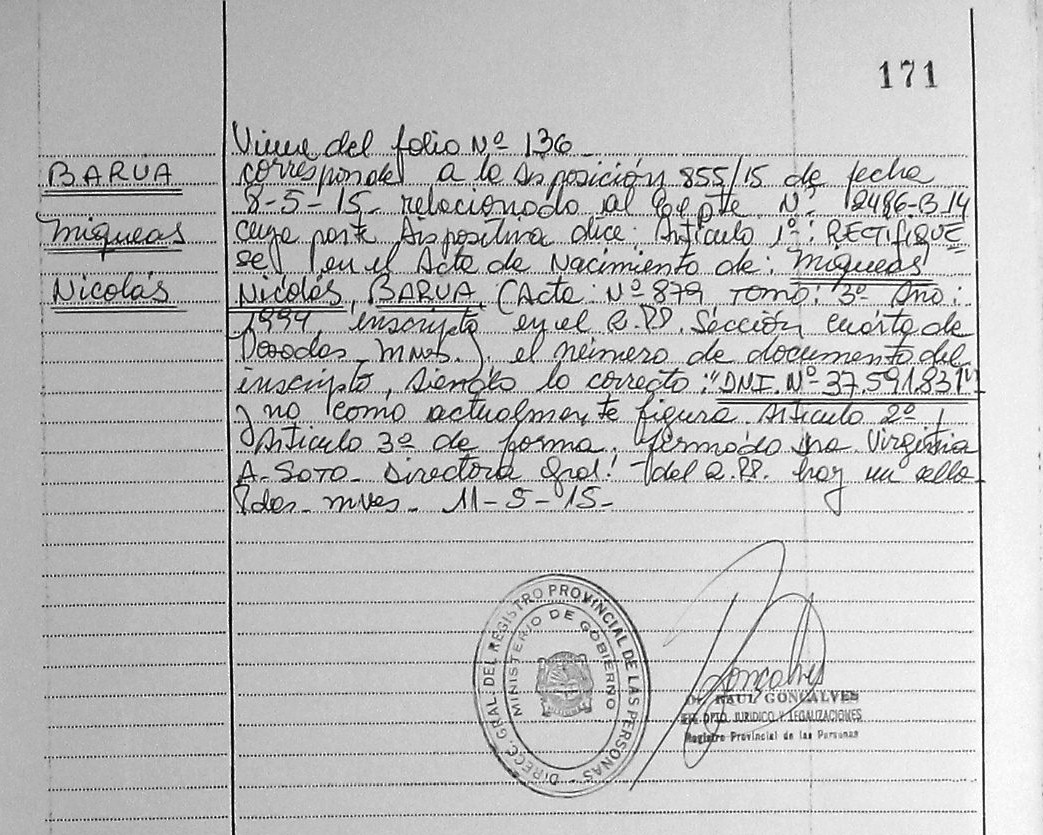 171
BARUA
Miqueas
Nicolás
Viene del folio Nº 136
corresponde a la disposición 855/15 de fecha
8-5-15- relacionado al Expte Nº 2486-B-14
cuya parte dispositiva dice: Artículo 1º: RECTIFIQUE
se en el Acta de Nacimiento de: Miqueas
Nicolás, BARUA, (Acta: Nº 879 Tomo: 3º Año:
inscripto en el R.PP. Sección cuarta de
Posadas Mnes.). el número de documento del
inscripto, siendo lo correcto: "DNI. Nº 37.591.831"
y no como actualmente figura. Articulo 2º /
Articulo 3º de forma. firmado Virginia
A. SOTO- Directora Gral! del R.PP. hay un sello
Pdas- mnes- 11-5-15-
DIRECC. GRAL. DEL REGISTRO PROVINCIAL DE LAS PERSONAS -
MINISTERIO DE GOBIERNO
Goncalves
Dr. RAUL GONCALVES
JEFE DPTO. JURIDICO Y LEGALIZACIONES
Registro Provincial de las Personas